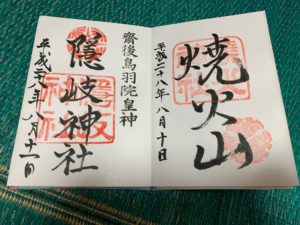 焼火山
平成二十八年八月十日
齋後鳥羽院皇神
隠岐神社
平成廿八年八月十一日